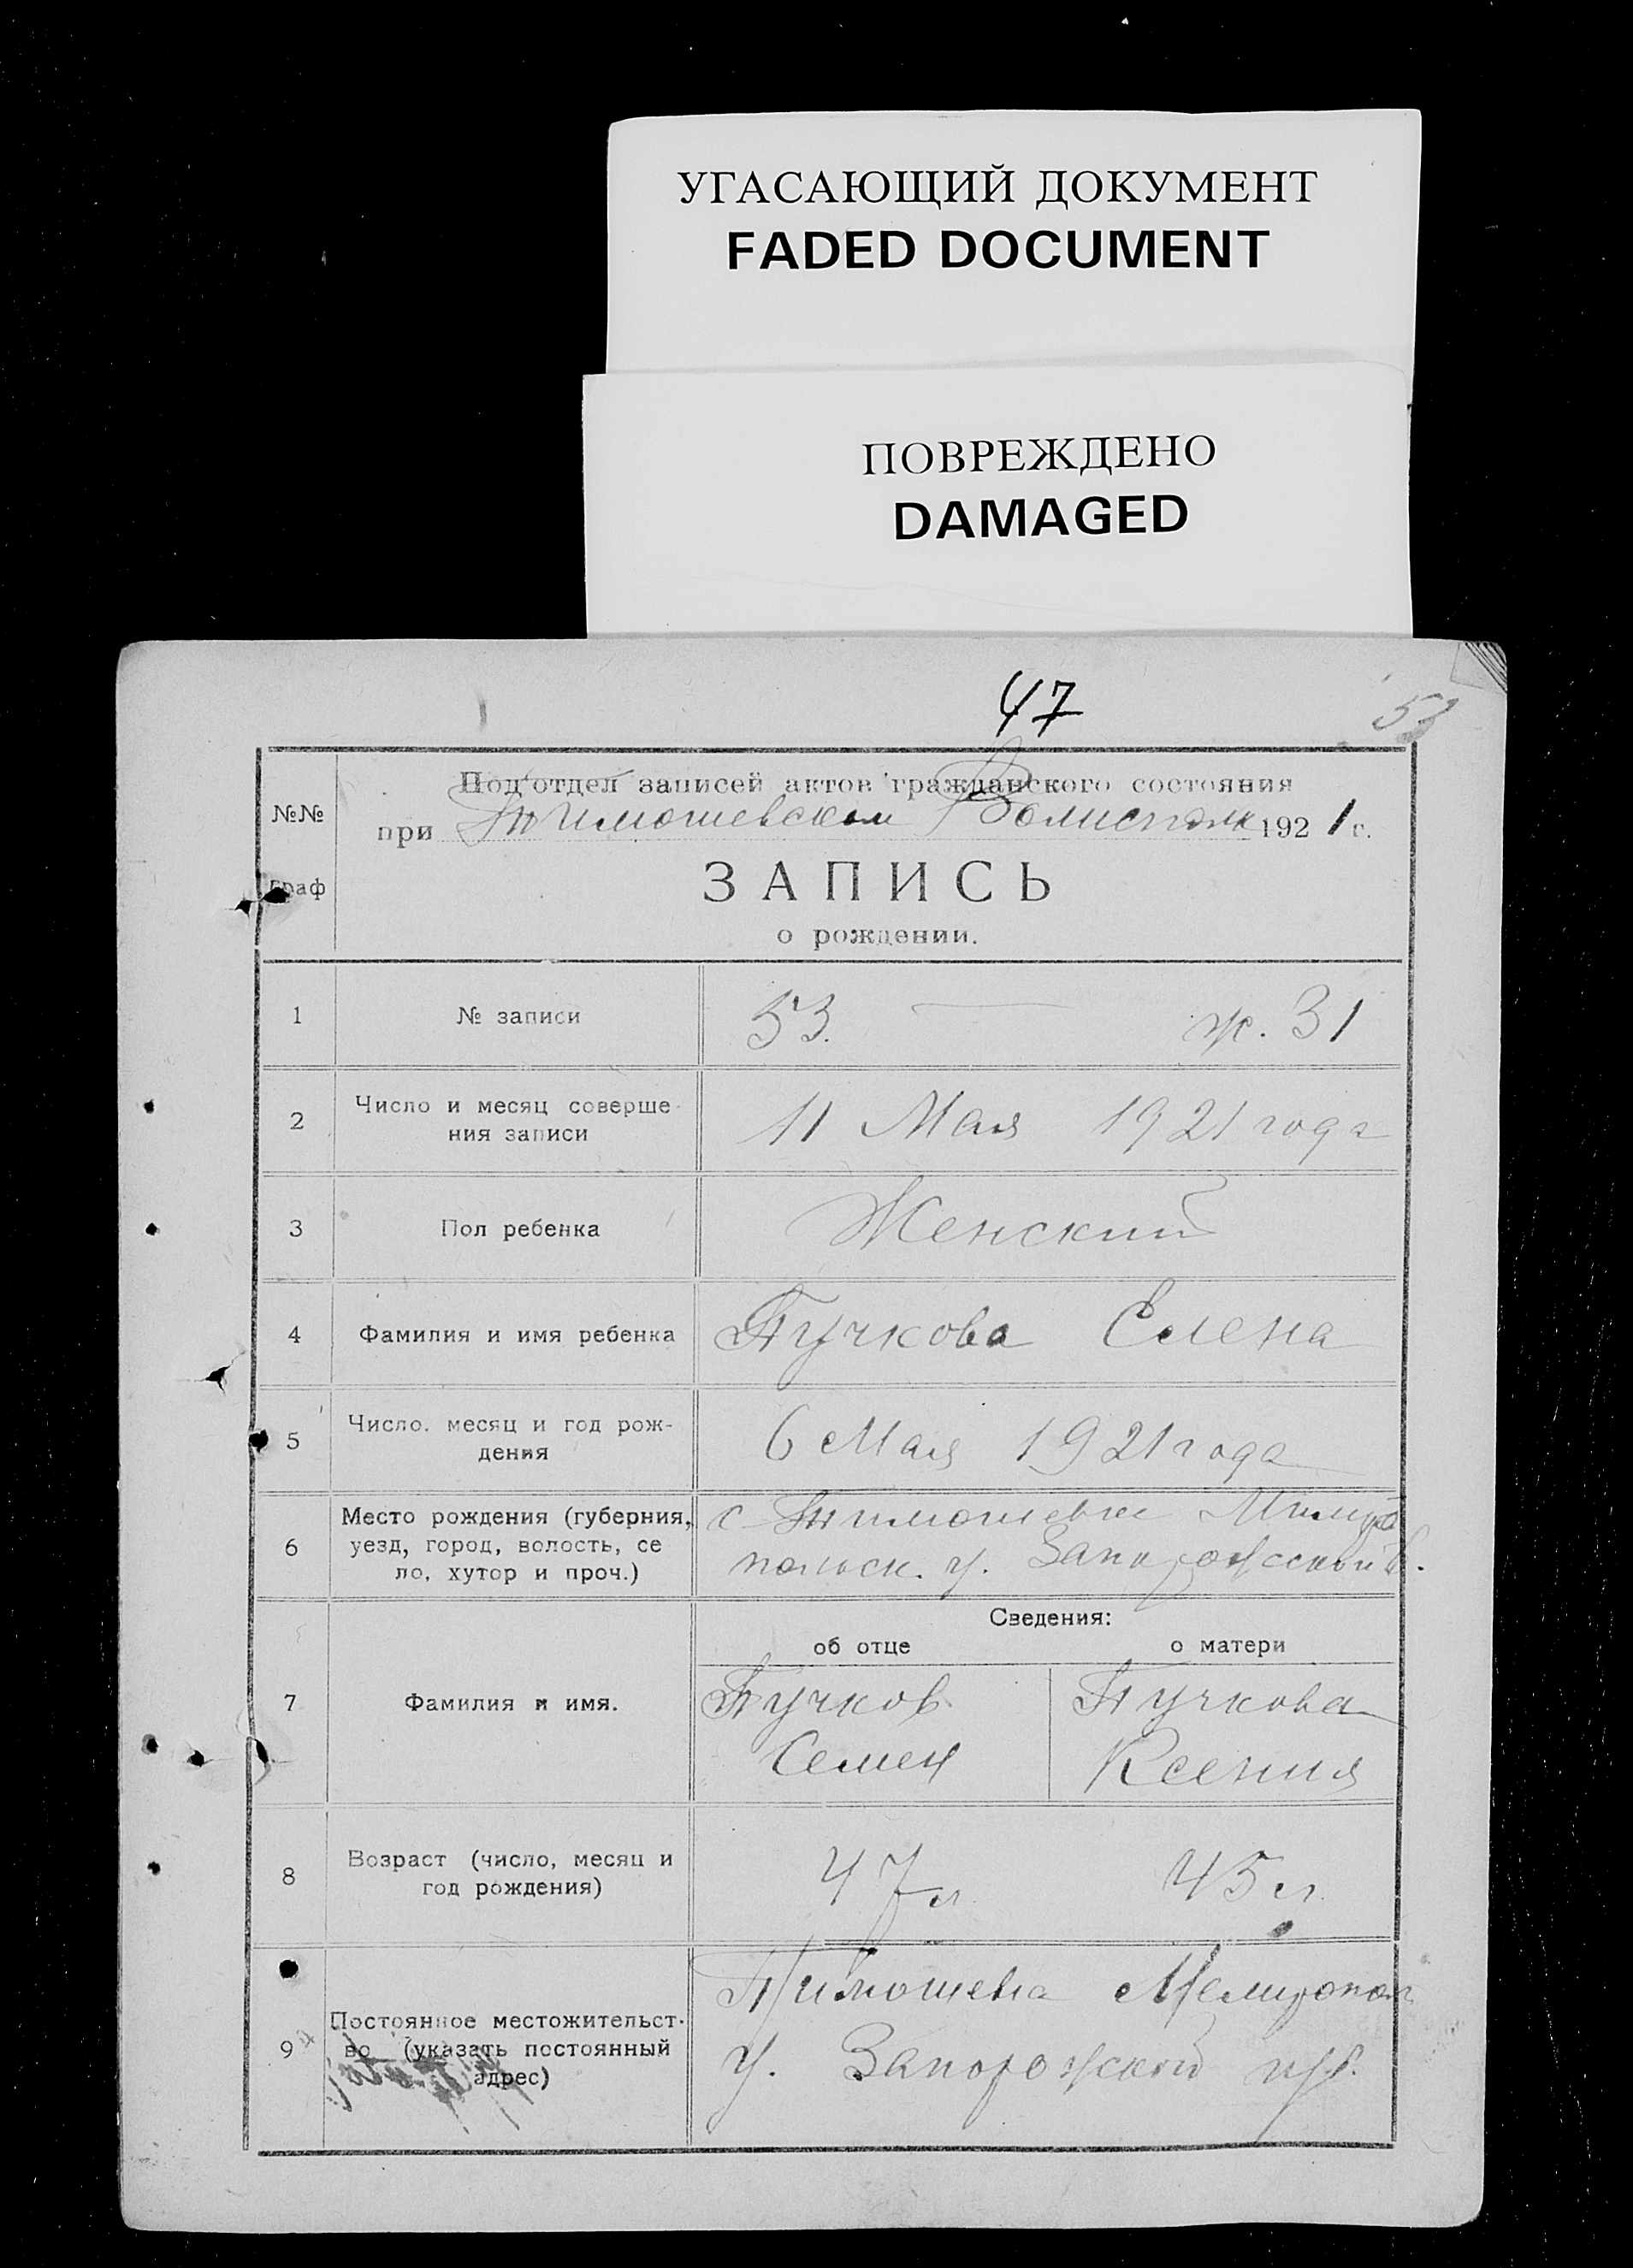 УГАСАЮЩИЙ ДОКУМЕНТ
FADED DOCUMENT
ПОВРЕЖДЕНО
DAMAGED
47
53
№№
граф
Подотдел записей актов гражданского состояния
при Тимошевском Волисполк 1921 г.
ЗАПИСЬ
о рождении.
1
№ записи
53. — ж. 31
2
Число и месяц соверше-
ния записи
11 Мая 1921 года
3
Пол ребенка
Женский
4
Фамилия и имя ребенка
Пучкова Елена
5
Число. месяц и год рож-
дения
6 Мая 1921 года
6
Место рождения (губерния,
уезд, город, волость, се
ло, хутор и проч.)
с Тимошевке
польск. у. Запорожской
Сведения:
об отце
о матери
7
Фамилия и имя.
Пучков
Семен
Пучкова
Ксения
8
Возраст (число, месяц и
год рождения)
47 л
45 л.
9
Постоянное местожительст-
во (указать постоянный
адрес)
Мелитопол
у. Запорожской губ.